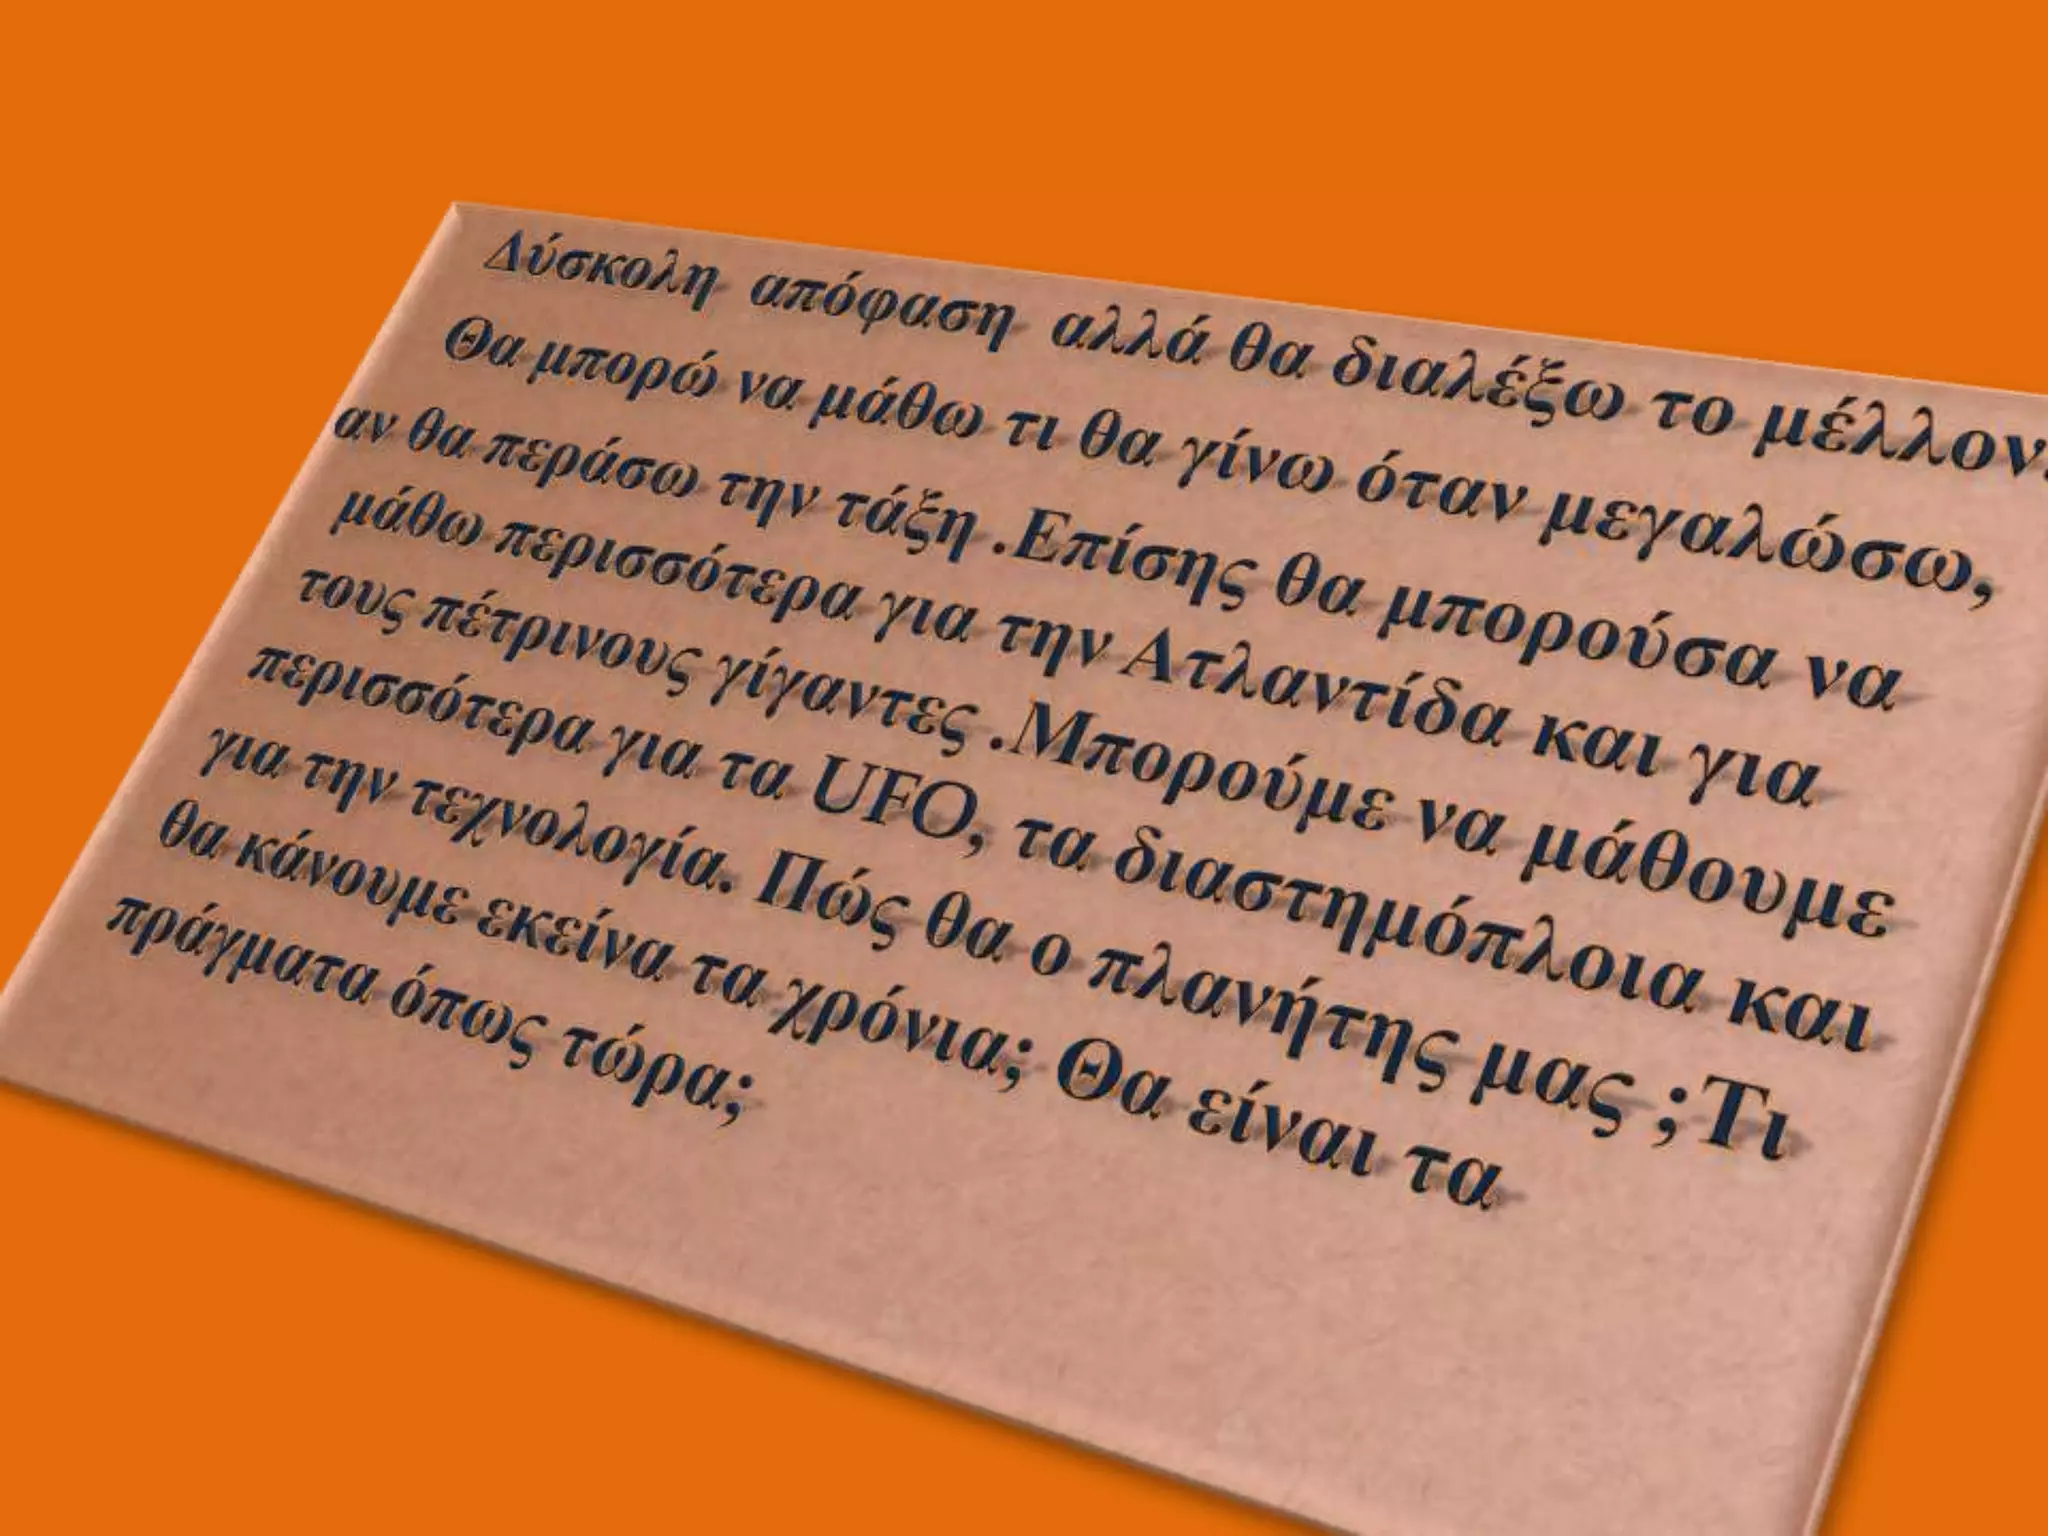 Δύσκολη απόφαση αλλά θα διαλέξω το μέλλον.
Θα μπορώ να μάθω τι θα γίνω όταν μεγαλώσω,
αν θα περάσω την τάξη .Επίσης θα μπορούσα να
μάθω περισσότερα για την Ατλαντίδα και για
τους πέτρινους γίγαντες .Μπορούμε να μάθουμε
περισσότερα για τα UFO, τα διαστημόπλοια και
για την τεχνολογία. Πώς θα ο πλανήτης μας ;Τι
θα κάνουμε εκείνα τα χρόνια; Θα είναι τα
πράγματα όπως τώρα;